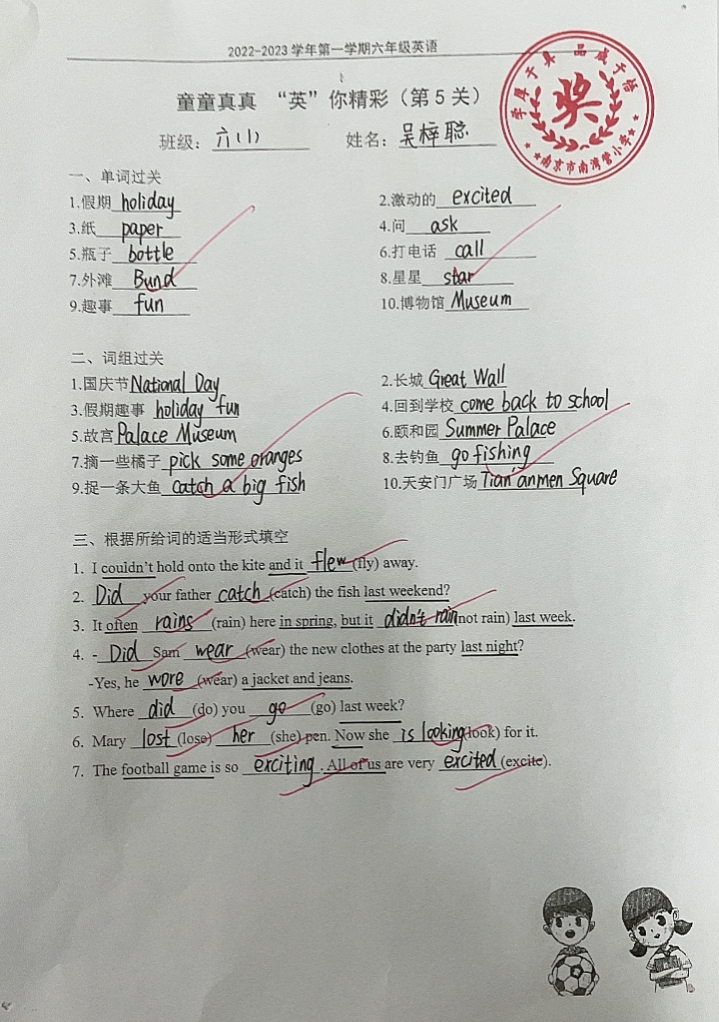 2022-2023 学年第一学期六年级英语
童童真真 “英”你精彩（第 5 关）
学厚于真 品成于悟
奖
南京市南湾营小学
班级：六(1) 姓名：吴梓聪
一、单词过关
1.假期 holiday 2.激动的 excited
3.纸 paper 4.问 ask
5.瓶子 bottle 6.打电话 call
7.外滩 Bund 8.星星 star
9.趣事 fun 10.博物馆 Museum
二、词组过关
1.国庆节 National Day 2.长城 Great Wall
3.假期趣事 holiday fun 4.回到学校 come back to school
5.故宫 Palace Museum 6.颐和园 Summer Palace
7.摘一些橘子 pick some oranges 8.去钓鱼 go fishing
9.捉一条大鱼 catch a big fish 10.天安门广场 Tian'anmen Square
三、根据所给词的适当形式填空
1. I couldn't hold onto the kite and it flew (fly) away.
2. Did your father catch (catch) the fish last weekend?
3. It often rains (rain) here in spring, but it didn't rain (not rain) last week.
4. - Did Sam wear (wear) the new clothes at the party last night?
-Yes, he wore (wear) a jacket and jeans.
5. Where did (do) you go (go) last week?
6. Mary lost (lose) her (she) pen. Now she is looking (look) for it.
7. The football game is so exciting . All of us are very excited (excite).